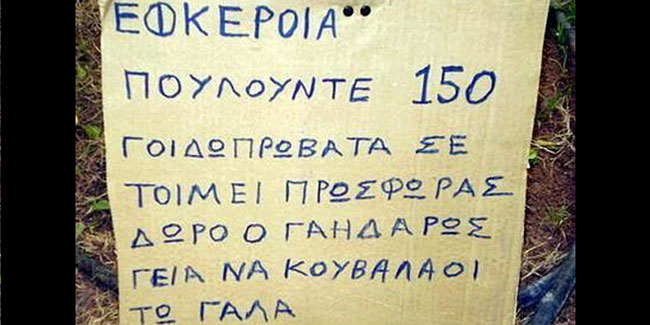 ΕΦΚΕΡΟΙΑ¨
ΠΟΥΛΟΥΝΤΕ 150
ΓΟΙΔΩΠΡΩΒΑΤΑ ΣΕ
ΤΟΙΜΕΙ ΠΡΩΣΦΩΡΑΣ
ΔΩΡΟ Ο ΓΑΗΔΑΡΩΣ
ΓΕΙΑ ΝΑ ΚΟΥΒΑΛΑΟΙ
ΤΩ ΓΑΛΑ